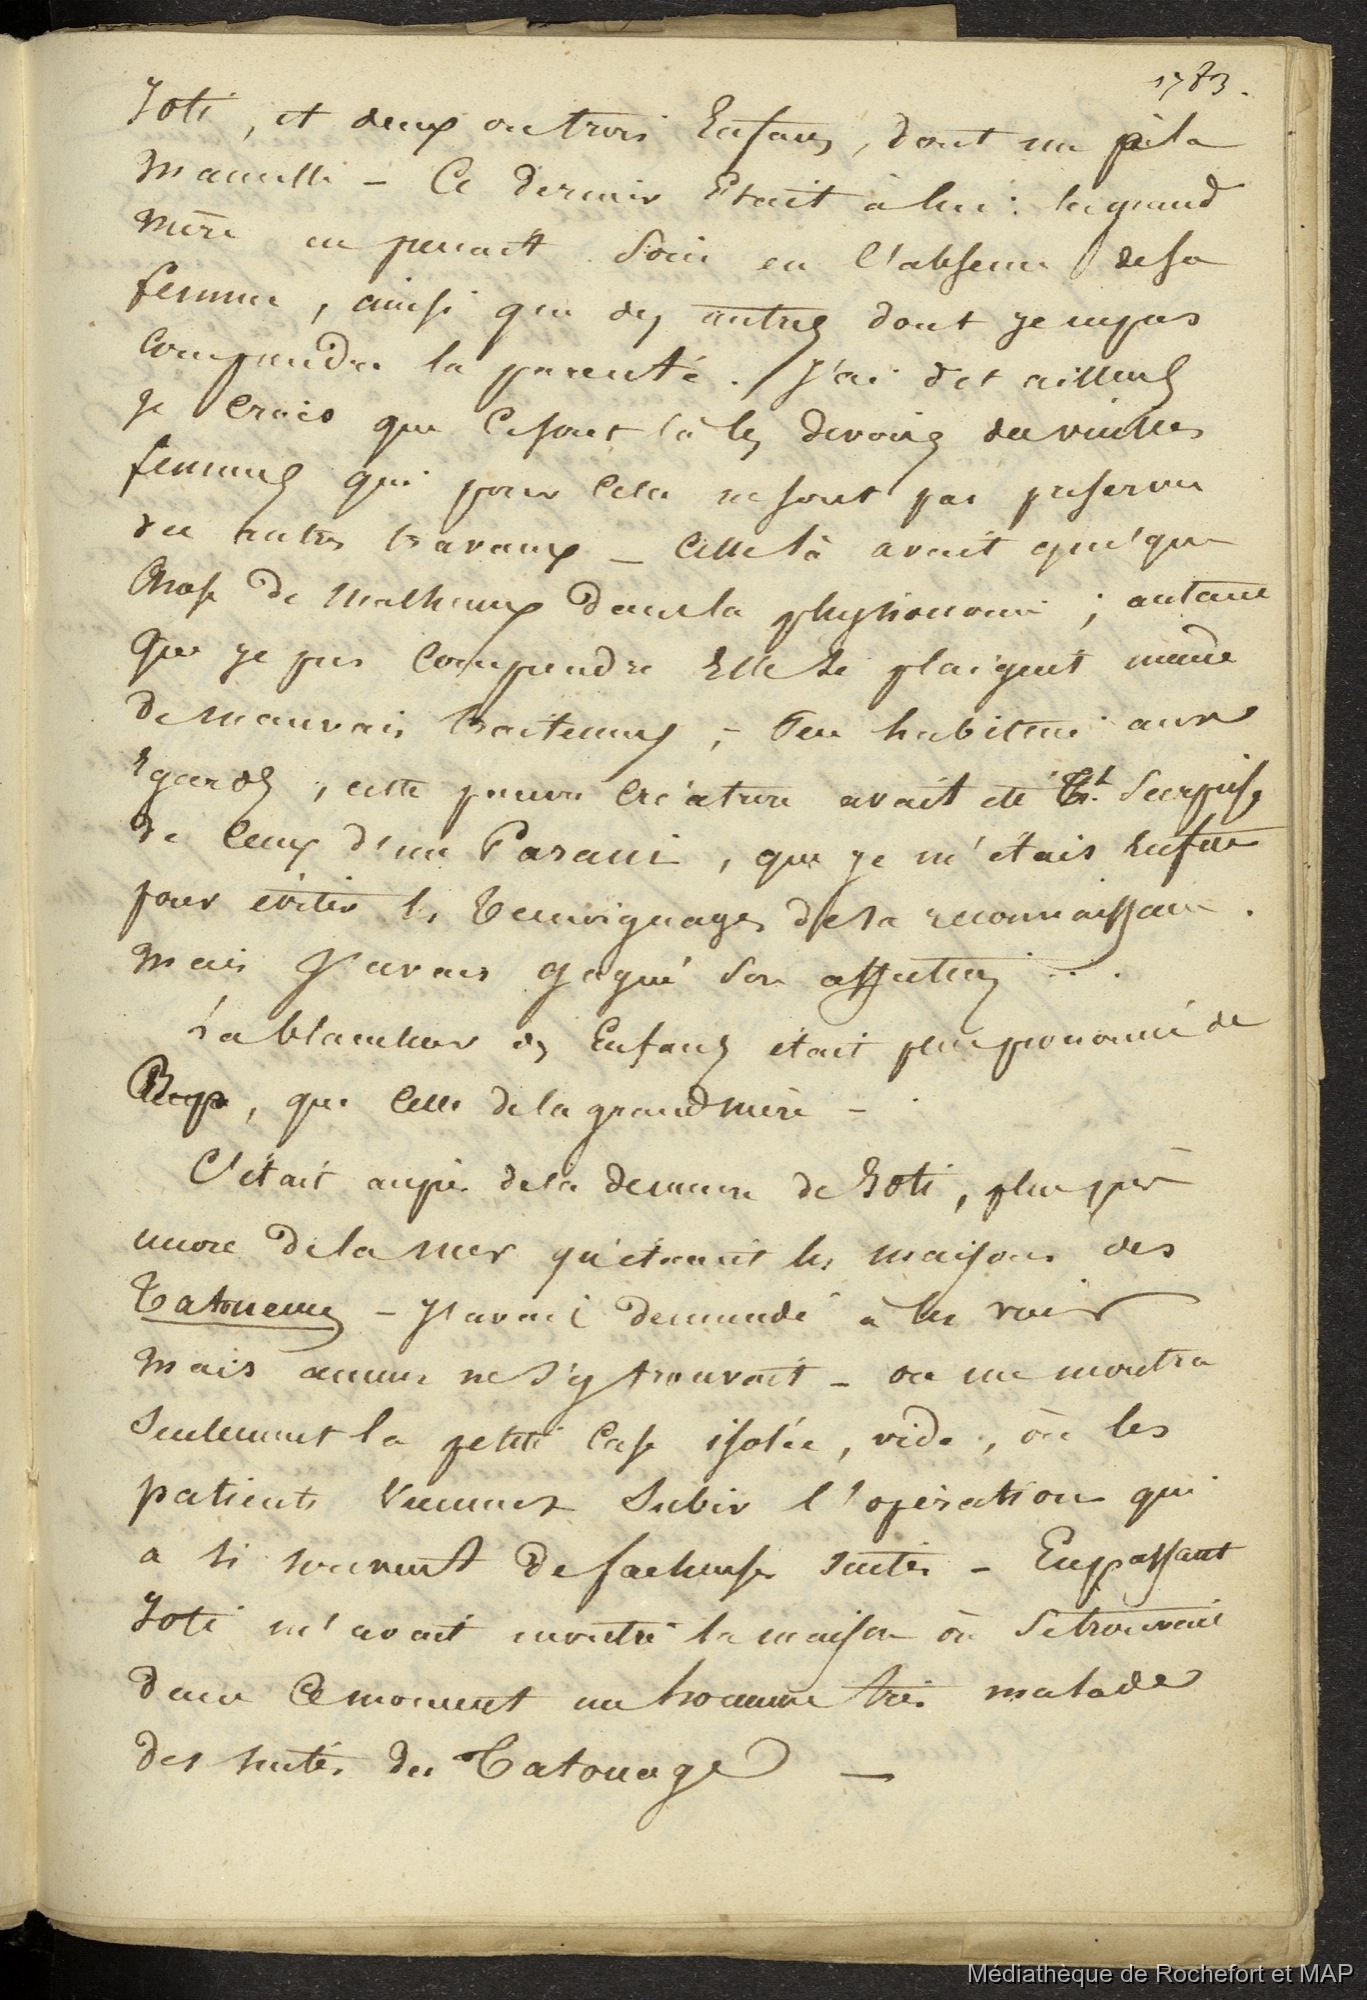 1783.
Toti, et deux ou trois Enfans, dont un à la
mamelle – Ce dernier Etait à lui : la grand
mère en prenait Soin en l'absence de sa
femme, ainsi que des autres dont je ne pus
comprendre la parenté. J'ai dit ailleurs
je crois que ce sont là les devoirs des vieilles
femmes qui pour cela ne sont pas
des autres travaux – Celle là avait quelque
Chose de malheureux dans la physionomie ; autant
que je pus comprendre Elle se plaignit même
de mauvais traitemens, – Peu habituée aux
Egards, cette pauvre créature avait été Surprise
de ceux d'un Parani, que je m'étais
pour éviter les témoignages de sa reconnaissance.
Mais J'avais gagné Son affection . . .
La blancheur des Enfans était plus prononcée de
, que Celle de la grand mère –
C'était auprès de la demeure de Toti, plus près
encore de la mer qu'étaient les maisons des
Tatoueurs – J'avais demandé à les voir
Mais aucun ne S'y trouvait – on me montra
Seulement la petite Case isolée, vide, où les
patients viennent Subir l'opération qui
a si souvent de facheuses suites – En passant
Toti m'avait montré la maison où Se trouvait
dans ce moment un homme très malade
des suites du Tatouage –
Médiathèque de Rochefort et MAP